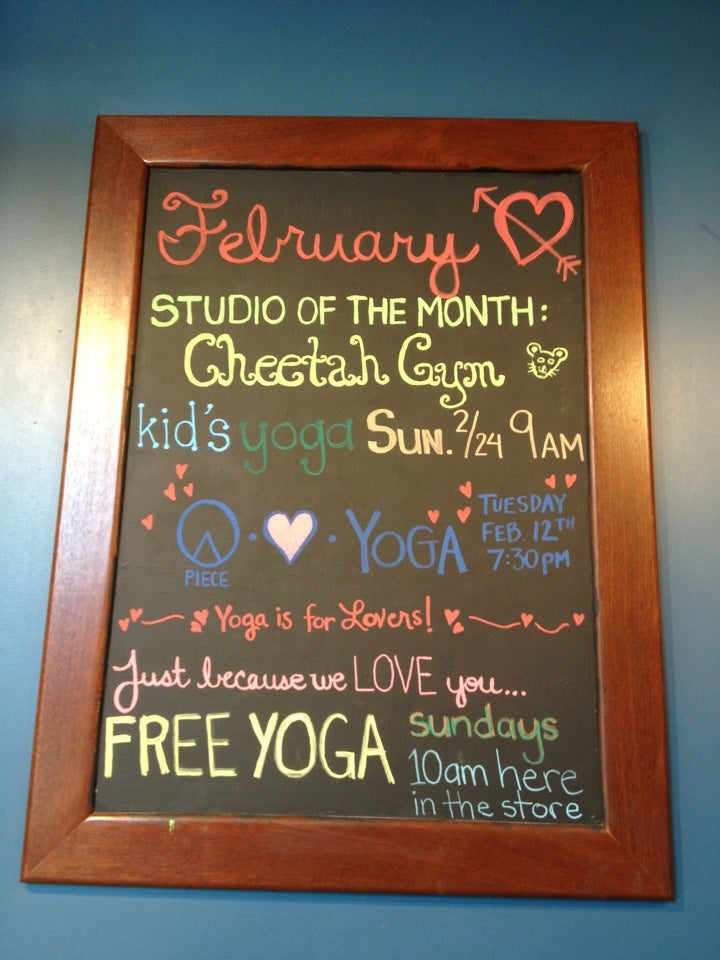 February
STUDIO OF THE MONTH:
Cheetah Gym
kid's yoga SUN. 2/24 9AM
PIECE · YOGA
TUESDAY
FEB. 12TH
7:30PM
Yoga is for Lovers!
Just because we LOVE you...
FREE YOGA
sundays
10am here
in the store